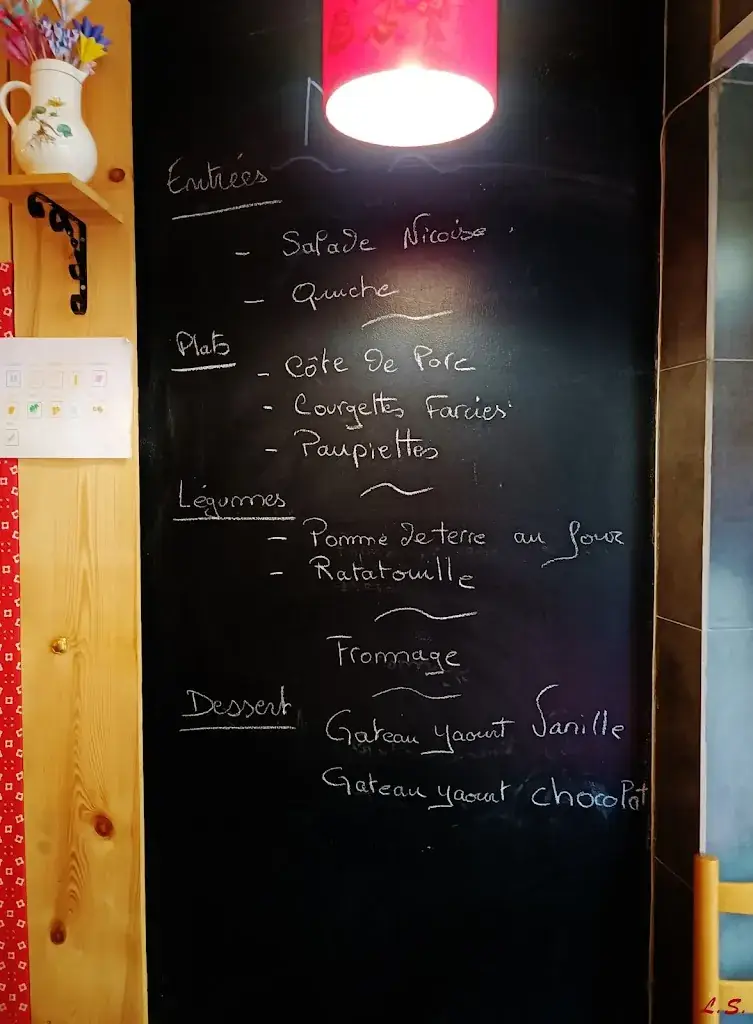 Entrées
- Salade Nicoise
- Quiche
Plats
- Côte de Porc
- Courgettes Farcies
- Paupiettes
Légumes
- Pomme de terre au four
- Ratatouille
Frommage
Dessert
Gateau yaourt Vanille
Gateau yaourt chocolat
L.S.